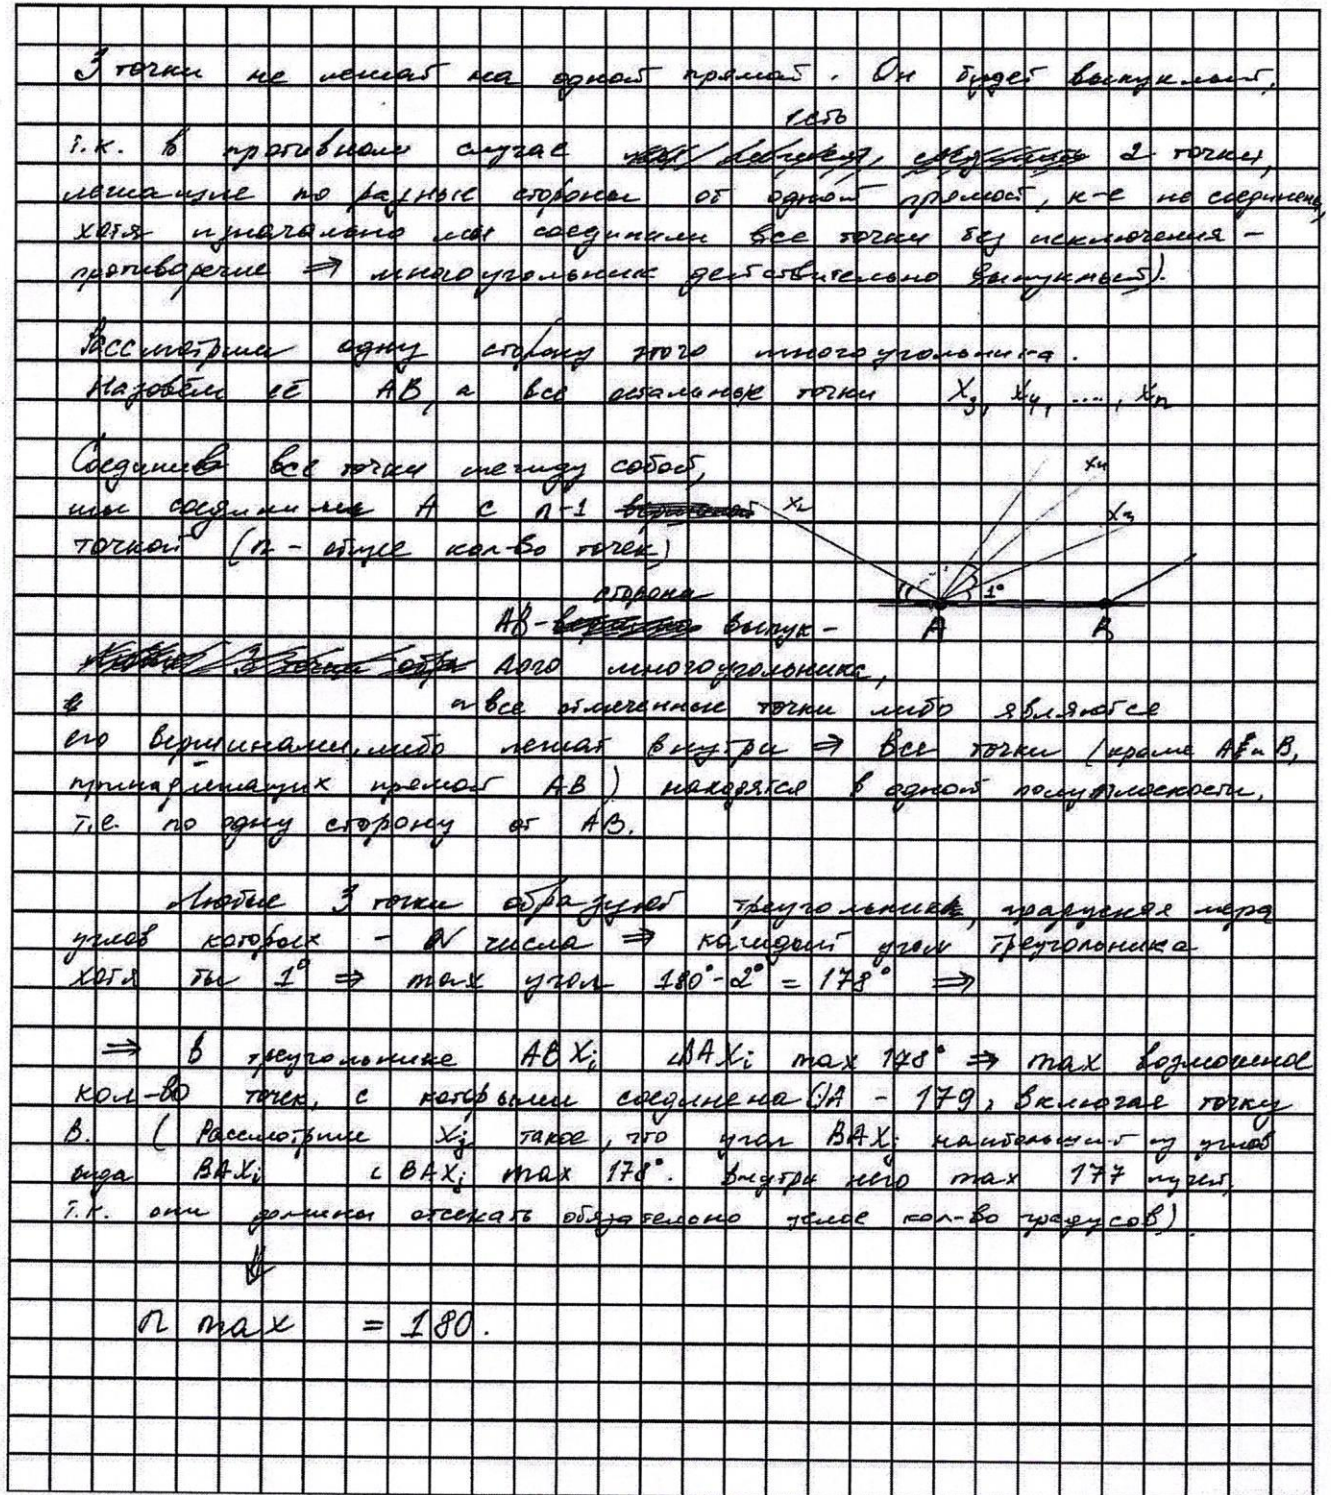 3 точки не лежат на одной прямой. Он будет выпуклый,
есть
т.к. в противном случае 2 точки,
лежащие по разные стороны от одной прямой, к-е не соединены,
хотя изначально мы соединили все точки без исключения -
противоречие ⇒ многоугольник действительно выпуклый).
Рассмотрим одну сторону этого многоугольника.
Назовём её AB, а все остальные точки X₃, X₄, ...., Xₙ
Соединив все точки между собой,
мы соединили A с n-1
точкой (n - общее кол-во точек)
сторона
AB - выпук-
лого многоугольника,
а все отмеченные точки либо являются
его вершинами, либо лежат внутри ⇒ все точки (кроме A и B,
принадлежащих прямой AB) находятся в одной полуплоскости,
т.е. по одну сторону от AB.
X₄
X₃
1°
A B
Любые 3 точки образуют треугольник, градусная мера
углов которых - N числа ⇒ каждый угол треугольника
хотя бы 1° ⇒ max угол 180°-2° = 178° ⇒
⇒ в треугольнике ABXᵢ ∠BAXᵢ max 178° ⇒ max возможное
кол-во точек, с которыми соединена A - 179, включая точку
B. (Рассмотрим Xⱼ такое, что угол BAXⱼ наибольший из углов
вида BAXᵢ ∠BAXⱼ max 178°. Внутри него max 177 лучей,
т.к. они должны отсекать обязательно целое кол-во градусов)
⇓
n max = 180.